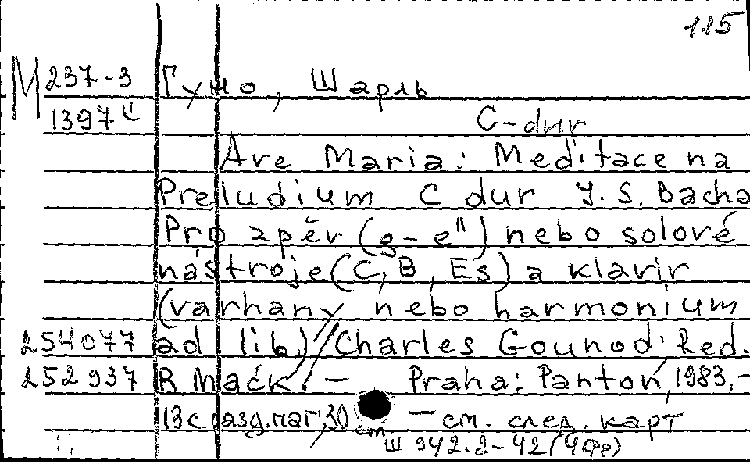 115
М 237-3 Гуно, Шарль
1397
C-dur
Ave Maria: Meditace na
Preludium C dur J. S. Bacha
Pro zpěv (g-e") nebo solové
nástroje (C, B, Es) a klavír
(varhany nebo harmonium
254077 ad lib.) / Charles Gounod; Red.
252937 R. Mačk. - Praha: Panton, 1983.-
13 с разд. паг, 30 см - см. след. карт
Ш 942.2-42(4Фр)